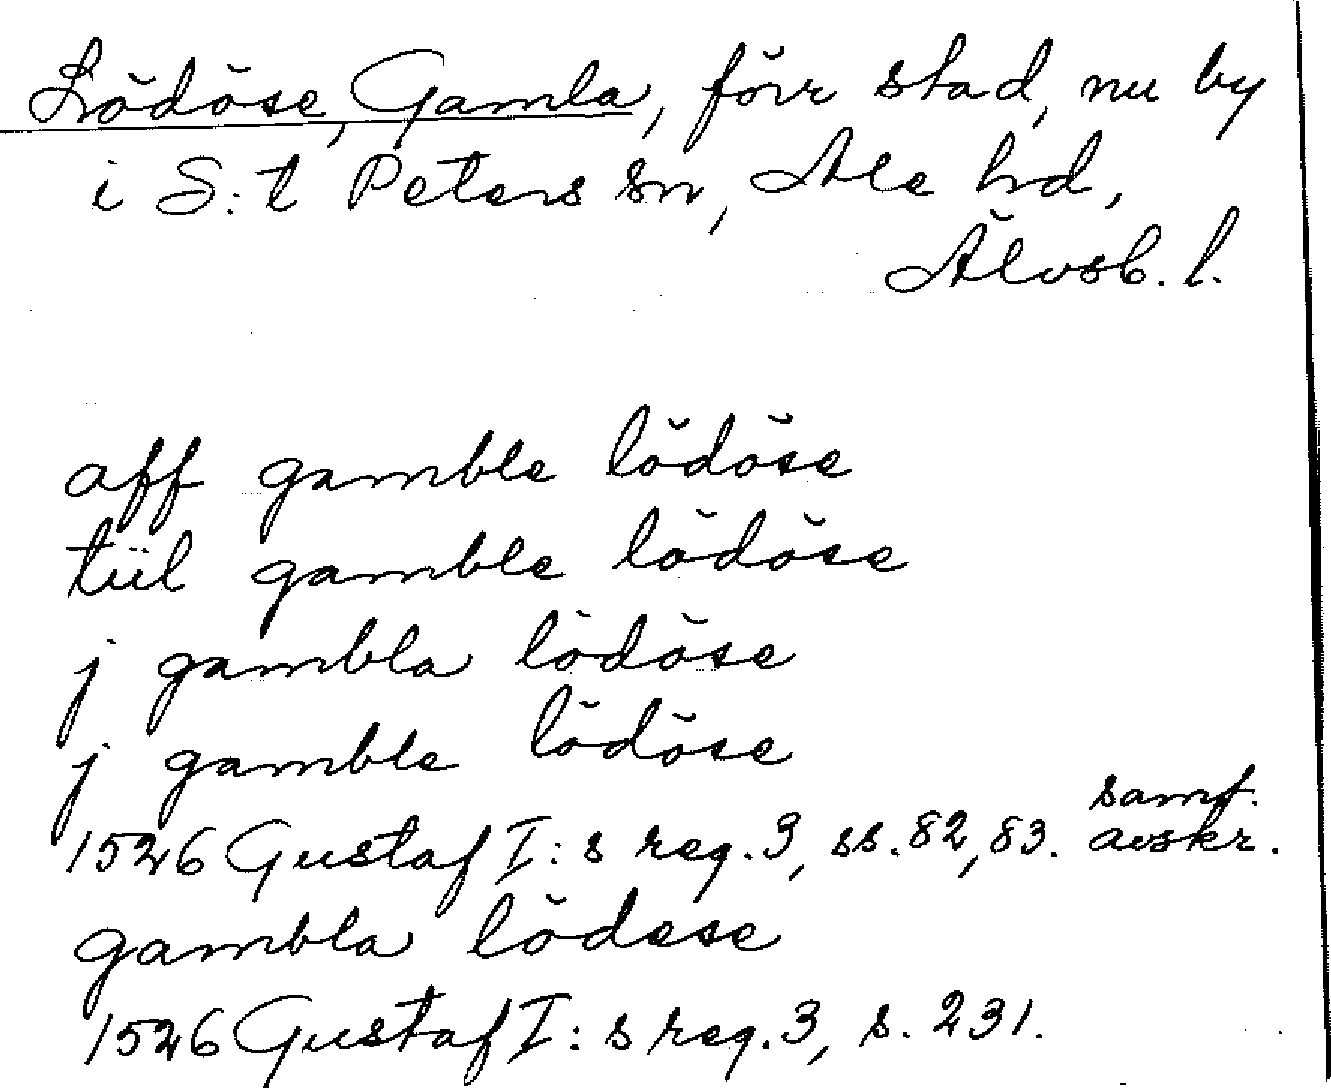 Lödöse, Gamla, förr stad, nu by
i S:t Peters sn, Ale hd,
Älvsb. l.
aff gamble lödöse
tiil gamble lödöse
j gambla lödöse
j gamble lödöse
samt.
1526 Gustaf I:s reg. 3, ss. 82, 83. avskr.
gambla lödese
1526 Gustaf I:s reg. 3, s. 231.